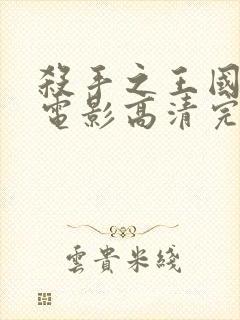 殺手之王國
電影高清完
雲貴米綫